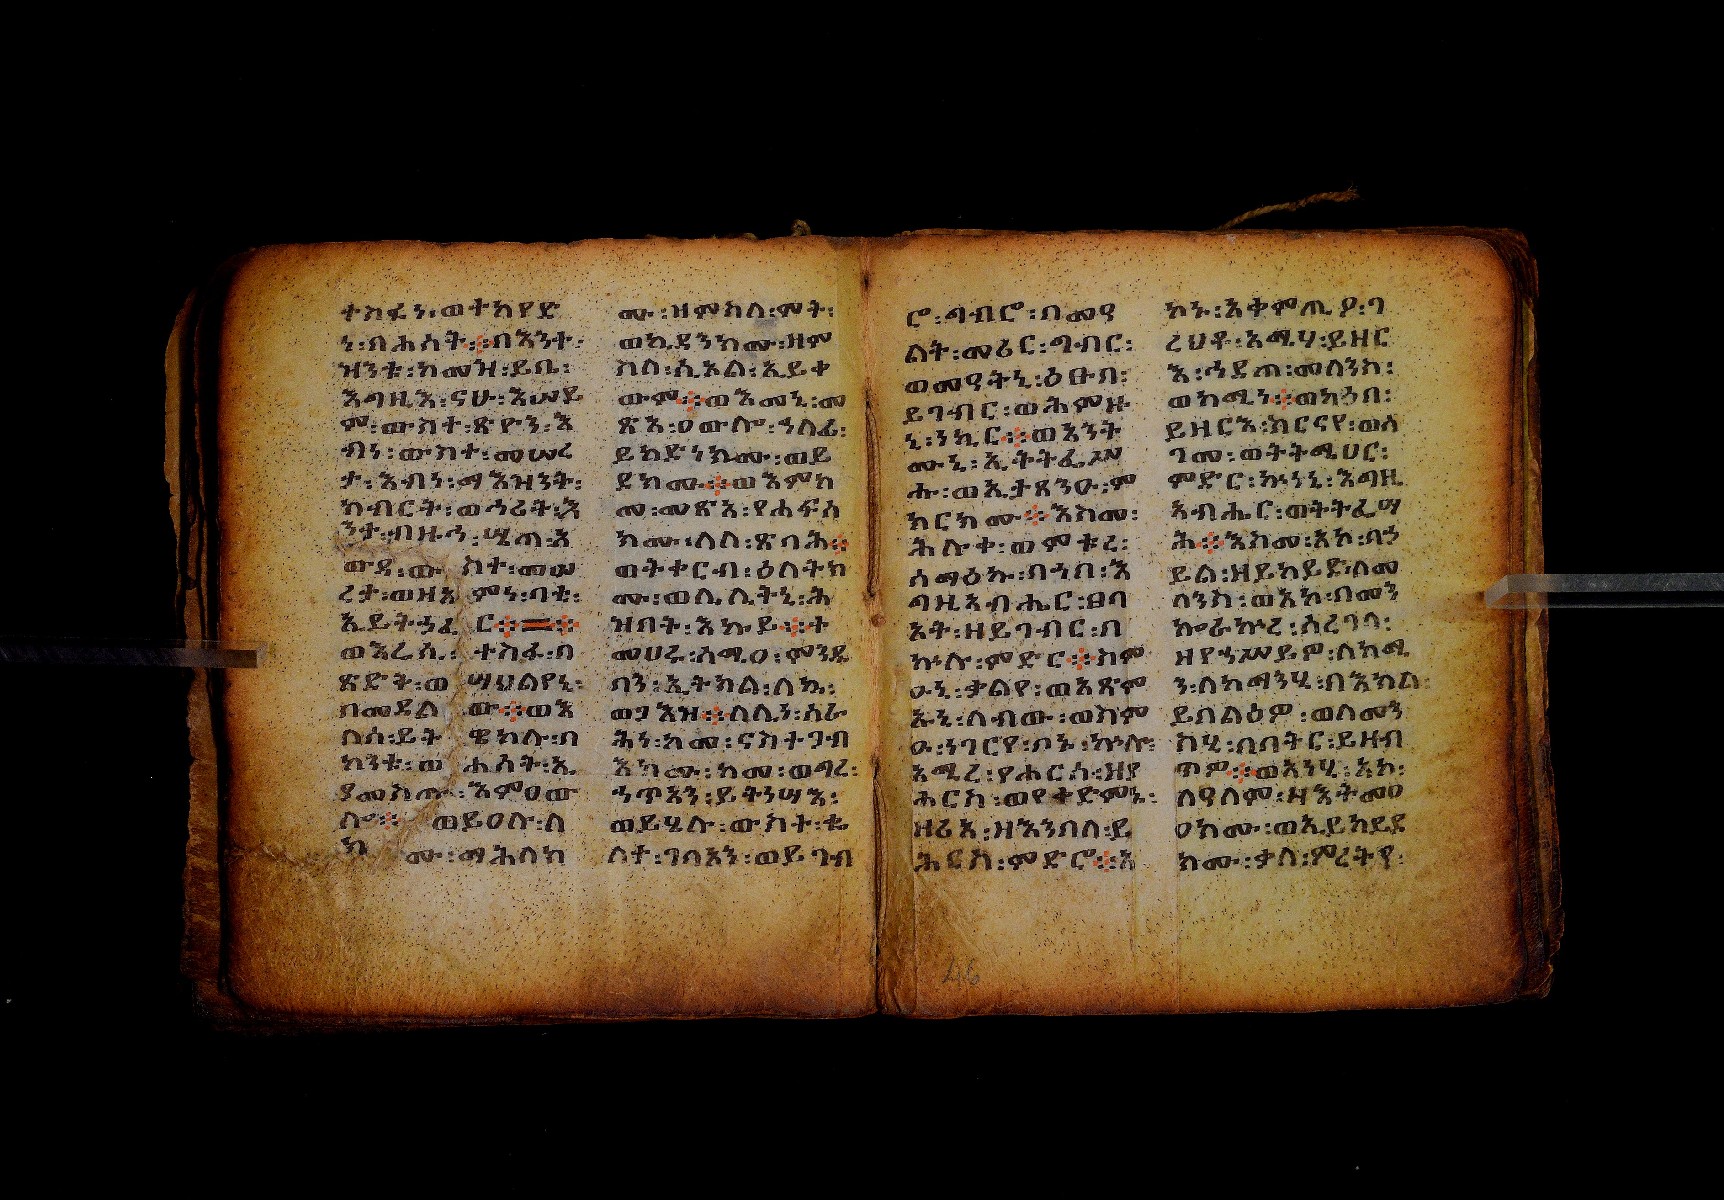 ተስፋነ፡ወተከየድ
ነ፡በሐሰት፡በእንተ፡
ዝንቱ፡ከመዝ፡ይቤ፡
እግዚእ፡ናሁ፡እሠይ
ም፡ውስተ፡ጽዮን፡እ
ብነ፡ውስተ፡መሠረ
ታ፡እብነ፡ማእዝንት፡
ክብርት፡ወኅሪት፡እ
ንተ፡ብዙኅ፡ሤጣ፡እ
ውደ፡ውስተ፡መሠ
ረታ፡ወዘአምነ፡ባቲ፡
ኢይትኃፈር
ወእሬሲ፡ተስፋ፡በ
ጽድት፡ወሣህልየኒ፡
በመደልው፡ወእ
ለሰ፡ይትዌከሉ፡በ
ከንቱ፡ወሐሰት፡ኢ
ያመስጡ፡እምዐው
ሎ፡ወይዐሉ፡ለ
ክሙ፡ማሕለከ
ሙ፡ዝምስለ፡ምት፡
ወኪዳንክሙ፡ዘም
ስለ፡ሲኦል፡ኢይቀ
ውም፡ወእመኒ፡መ
ጽአ፡ዐውሎ፡ኀለፊ፡
ይከድነክሙ፡ወይ
ደክሙ፡ወእምከ
መ፡መጽአ፡የሐፍሰ
ክሙ፡ለለ፡ጽባሕ
ወትቀርብ፡ዕለትክ
ሙ፡ወሌሊትኒ፡ሕ
ዝበት፡እኩይ፡ተ
መሀሩ፡ሰሚዐ፡ምንዱ
ባን፡ኢትክል፡ለኪ፡
ወያእዝ፡ለሊን፡ስራ
ሕን፡ከመ፡ናስተጋብ
እክሙ፡ከመ፡ወግረ፡
ኀጥኣን፡ይትነሣእ፡
ወይሄሉ፡ውስተ፡ቈ
ላተ፡ገባአን፡ወይገብ
ሮ፡ግብሮ፡በመዓ
ልት፡መሪር፡ግብር፡
ወመዓትኒ፡ዕፁብ፡
ይገብር፡ወሕምዙ
ኒ፡ነኪር፡ወአንት
ሙኒ፡ኢትትፌሥ
ሑ፡ወኢታጸንዑ፡ም
ክርክሙ፡እስመ፡
ሕሉቀ፡ወምቱረ፡
ሰማዕኩ፡በኀበ፡እ
ግዚአብሔር፡ፀባ
አት፡ዘይገብር፡በ
ኵሉ፡ምድር፡ስም
ዑኒ፡ቃልየ፡ወአጽም
ኡኒ፡ለብው፡ወስም
ዑ፡ነገርየ፡ቦኑ፡ኵሉ፡
አሚረ፡የሐርስ፡ዘየ
ሐርስ፡ወየተድምኔ፡
ዘሪአ፡ዘእንበለ፡ይ
ሕርስ፡ምድሮ፡አ
ኮኑ፡እቅምጢዖ፡ገ
ረህቶ፡አሜሃ፡ይዘር
እ፡ኀደጠ፡መለንስ፡
ወከሚነ፡ወካዕበ፡
ይዘርእ፡ስርናየ፡ወሰ
ገመ፡ወትትሜሀር፡
ምድር፡ኵነኔ፡እግዚ
አብሔር፡ወትትፌሣ
ሕ፡እስመ፡አኮ፡በኃ
ይል፡ዘይከይድ፡ለመ
ለንስ፡ወአኮ፡በመን
ኰራኵረ፡ሰረገላ፡
ዘየኃሥይዎ፡ለከሚ
ን፡ለከማንሂ፡በእክል፡
ይበልዕዎ፡ወለመን
ስሂ፡በበትር፡ይዘብ
ጥዎ፡ወአንሂ፡አኮ፡
ለዓለም፡ዘእትመዐ
ዐክሙ፡ወኢይከይደ
ክሙ፡ቃለ፡ምረትየ፡
46